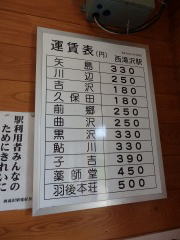 運賃表(円) 西滝沢駅
矢島 330
川辺 250
吉沢 180
久保田 180
前郷 250
曲沢 250
黒沢 330
鮎川 330
子吉 390
薬師堂 450
羽後本荘 500
駅利用者みんなの
ためにきれいに